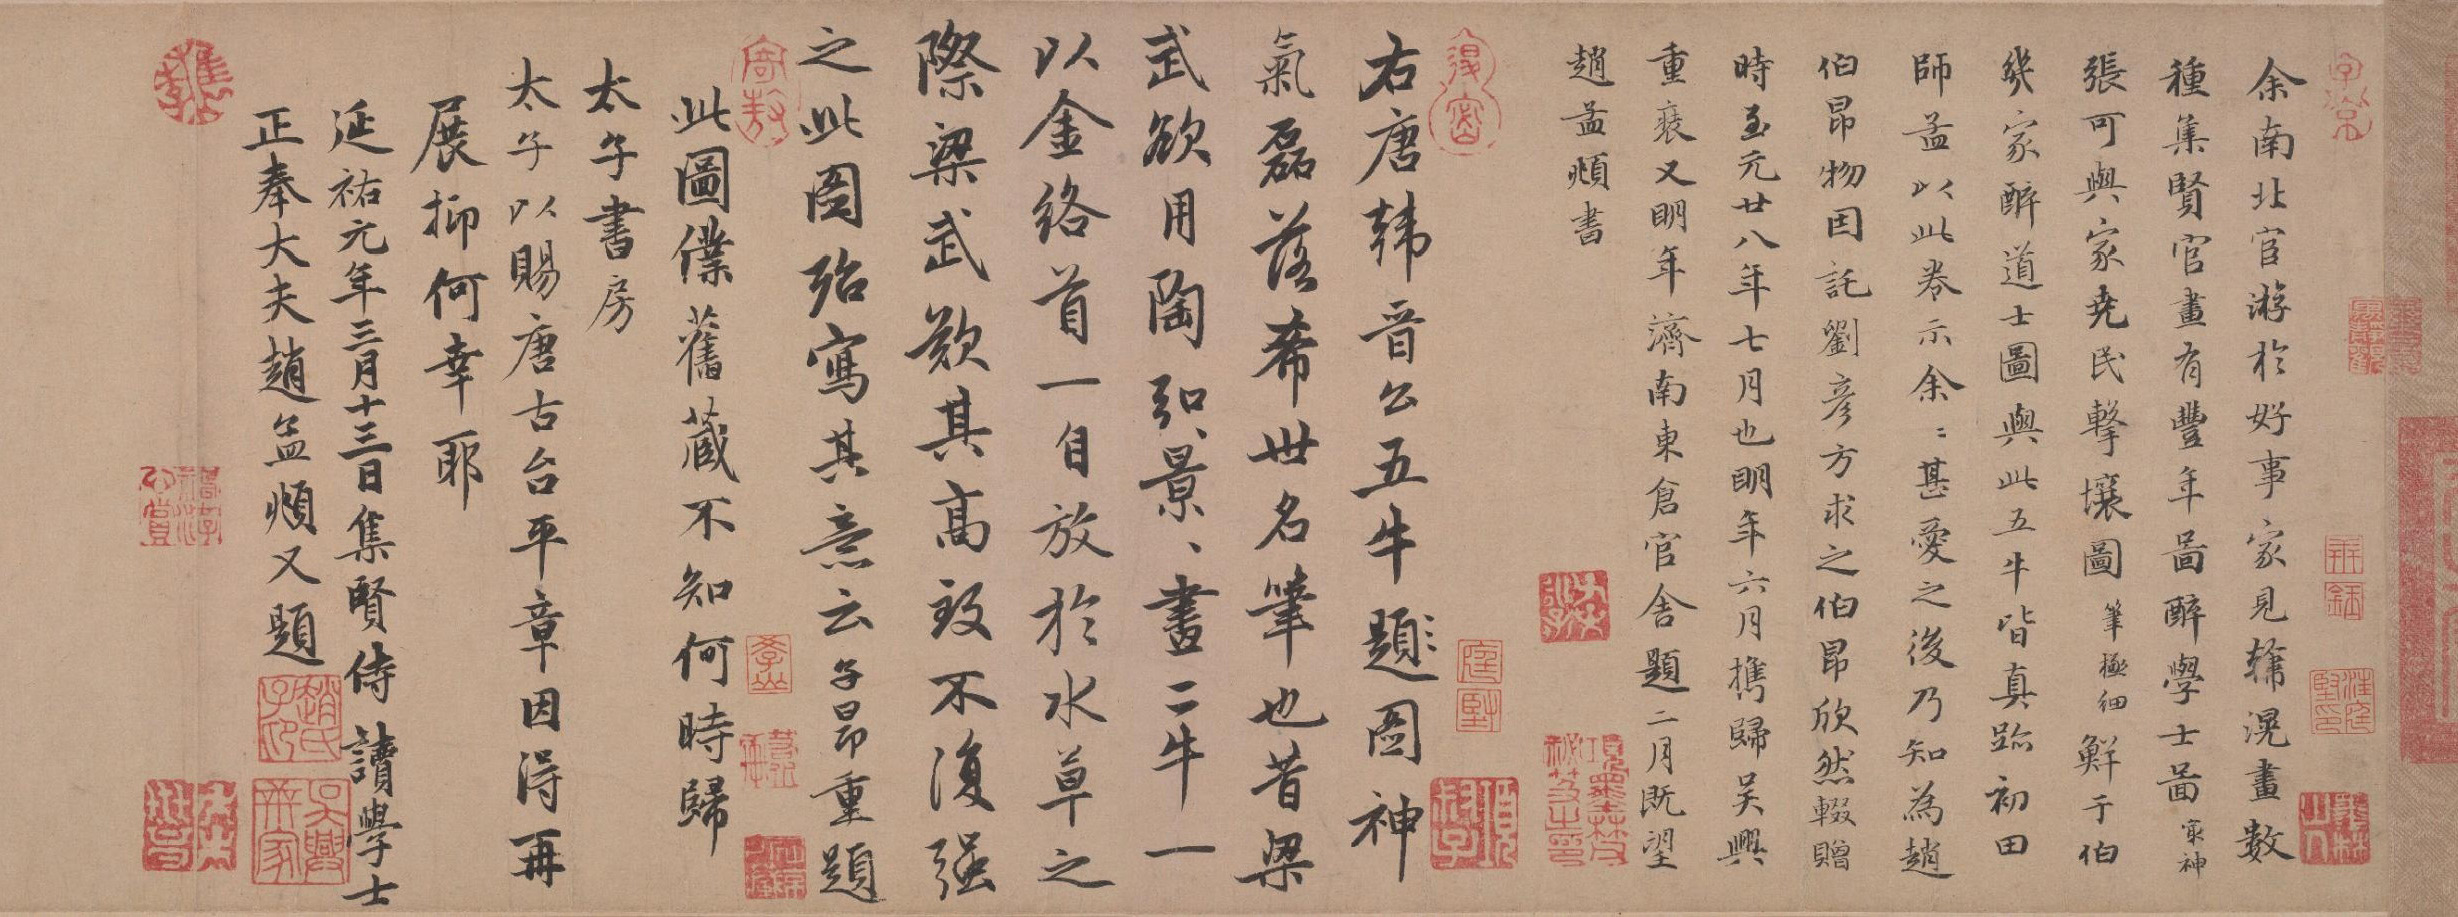 余南北官游於好事家見韓滉畫數
種集賢官畫有豐年啚醉學士啚最神
張可與家堯民擊壤圖筆極細鮮于伯
幾家醉道士圖與此五牛皆真跡初田
師孟以此卷示余〻甚愛之後乃知為趙
伯昂物因託劉彥方求之伯昂欣然輟贈
時至元廿八年七月也明年六月攜歸吳興
重裝又明年濟南東倉官舍題二月既望
趙孟頫書
右唐韓晉公五牛題〻圖神
氣磊落希世名筆也昔梁
武欲用陶弘景、畫二牛一
以金絡首一自放於水草之
際梁武歎其高致不復強
之此圖殆寫其意云子昂重題
此圖僕舊藏不知何時歸
太子書房
太子以賜唐古台平章因得再
展抑何幸耶
延祐元年三月十三日集賢侍讀學士
正奉大夫趙孟頫又題